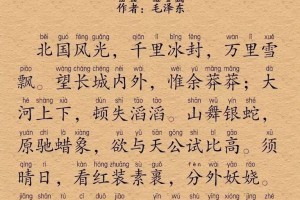 作者：毛泽东
běi guó fēng guāng qiān lǐ bīng fēng wàn lǐ xuě
北国风光，千里冰封，万里雪
piāo wàng cháng chéng nèi wài wéi yú mǎng mǎng dà
飘。望长城内外，惟余莽莽；大
hé shàng xià dùn shī tāo tāo shān wǔ yín shé
河上下，顿失滔滔。山舞银蛇，
yuán chí là xiàng yù yǔ tiān gōng shì bǐ gāo xū
原驰蜡象，欲与天公试比高。须
qíng rì kàn hóng zhuāng sù guǒ fèn wài yāo ráo
晴日，看红装素裹，分外妖娆。